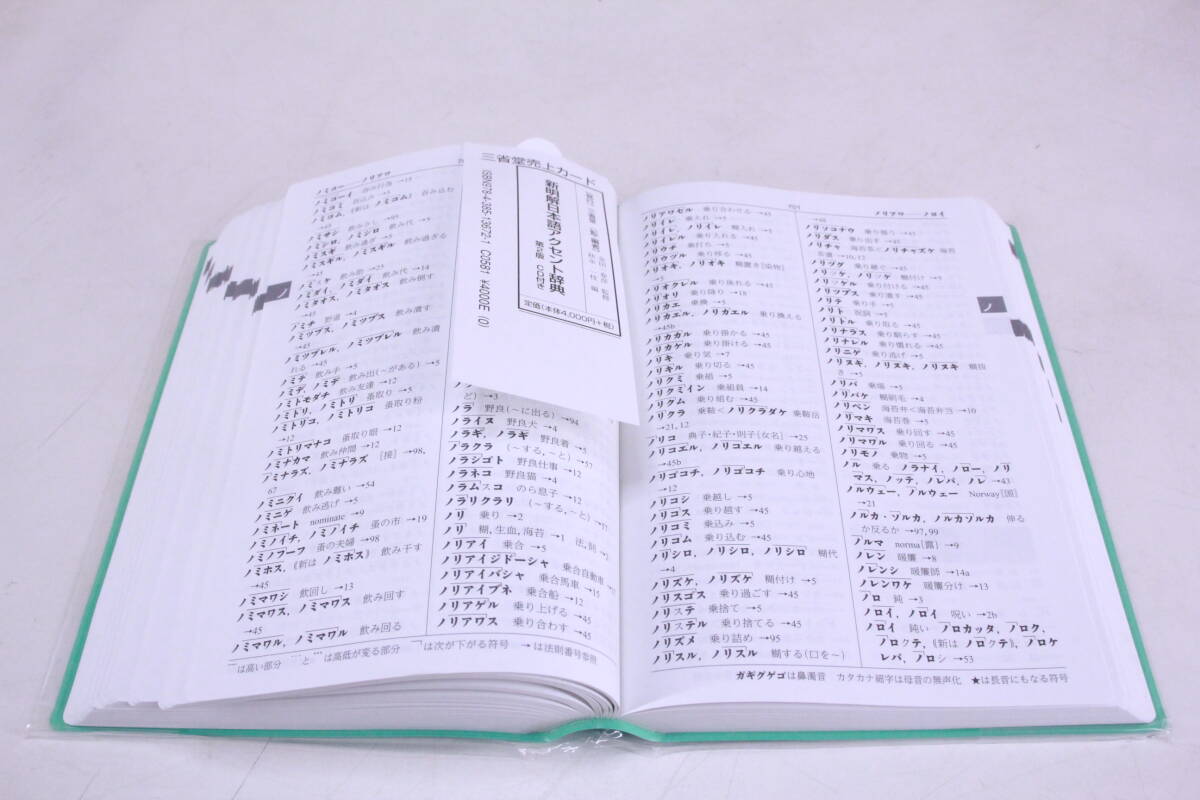 ノミコー――ノリアロ
ノミコーイ 呑み行為 →15
ノミコミ 呑込み →5
ノミコム,《新は ノミコム》 呑み込む
ノミサシ 飲みさし →95
ノミシロ, ノミシロ 飲み代 →5
ノミスギ 飲み過ぎ →5
ノミスギル, ノミスギル 飲み過ぎる
→45
ノミスケ 飲み助 →25
ノミダイ, ノミダイ 飲み代 →14
ノミタオス, ノミタオス 飲み倒す
→45
ノミチ 野道 →4
ノミツブス, ノミツブス 飲み潰す
→45
ノミツブレル, ノミツブレル 飲み潰
れる →45
ノミテ 飲み手 →5
ノミデ, ノミデ 飲み出(~がある) →5
ノミトモダチ 飲み友達 →12
ノミトリ, ノミトリ 蚤取り →5
ノミトリコ, ノミトリコ 蚤取り粉
→12
ノミトリマナコ 蚤取り眼 →12
ノミナカマ 飲み仲間 →12
ノミナラズ, ノミナラズ [接] →98,
67
ノミニクイ 飲み難い →54
ノミニゲ 飲み逃げ →5
ノミネート nominate →9
ノミノイチ, ノミノイチ 蚤の市 →19
ノミノフーフ 蚤の夫婦 →98
ノミホス,《新は ノミホス》 飲み干す
→45
ノミマワシ 飲回し →13
ノミマワス, ノミマワス 飲み回す
→45
ノミマワル, ノミマワル 飲み回る
三省堂売上カード
新明解日本語アクセント辞典
第2版 CD付き
定価(本体4,000円+税)
ISBN978-4-385-13672-1 C0581 ¥4000E (0)
ど) →3
ノラ 野良(~に出る) →94
ノライヌ 野良犬 →4
ノラギ, ノラギ 野良着 →5
ノラクラ (~する,~と) →57
ノラシゴト 野良仕事 →12
ノラネコ 野良猫 →4
ノラムスコ のら息子 →12
ノラリクラリ (~する,~と) →57
ノリ 乗り →2
ノリ 糊,生血,海苔 →1 法,則 →2
ノリアイ 乗合 →5
ノリアイジドーシャ 乗合自動車
ノリアイバシャ 乗合馬車 →15
ノリアイブネ 乗合船 →12
ノリアゲル 乗り上げる →45
ノリアワス 乗り合わす →45
は高い部分 と は高低が変る部分 は次が下がる符号 → は法則番号参照
ノリアワセル 乗り合わせる →45
ノリイレ 乗入れ →5
ノリイレ, ノリイレ 糊入れ →5
ノリイレル 乗り入れる →45
ノリウチ 乗打ち →5
ノリウツル 乗り移る →45
ノリオキ, ノリオキ 糊置き[染物]
→5
ノリオクレル 乗り後れる →45
ノリオリ 乗り降り →18
ノリカエ 乗換 →5
ノリカエル, ノリカエル 乗り換える
→45b
ノリカカル 乗り掛かる →45
ノリカケル 乗り掛ける →45
ノリキ 乗り気 →7
ノリキル 乗り切る →45
ノリクミ 乗組 →5
ノリクミイン 乗組員 →14
ノリクム 乗り組む →45
ノリクラ 乗鞍<ノリクラダケ 乗鞍岳
→21, 12
ノリコ 典子・紀子・則子[女名] →25
ノリコエル, ノリコエル 乗り越える
→45b
ノリゴコチ, ノリゴコチ 乗り心地
→12
ノリコシ 乗越し →5
ノリコス 乗り越す →45
ノリコミ 乗込み →5
ノリコム 乗り込む →45
ノリシロ, ノリシロ, ノリシロ 糊代
→4
ノリズケ, ノリズケ 糊付け →5
ノリスゴス 乗り過ごす →45
ノリステ 乗捨て →5
ノリステル 乗り捨てる →45
ノリズメ 乗り詰め →95
ノリスル, ノリスル 糊する(口を~)
ノリアワ――ノロイ
→48
ノリソコナウ 乗り損う →45
ノリダス 乗り出す →45
ノリチャ 海苔茶<ノリチャズケ 海苔
茶漬 →10, 12
ノリツグ 乗り継ぐ →45
ノリツケ, ノリツケ 糊付け →5
ノリツケル 乗り付ける →45
ノリツブス 乗り潰す →45
ノリテ 乗り手 →5
ノリト 祝詞 →5
ノリトル 乗り取る →45
ノリナラス 乗り馴らす →45
ノリナレル 乗り慣れる →45
ノリニゲ 乗り逃げ →5
ノリヌキ, ノリヌキ, ノリヌキ 糊抜
き →5
ノリバ 乗場 →5
ノリバケ 糊刷毛 →4
ノリベン 海苔弁<海苔弁当 →10
ノリマキ 海苔巻 →5
ノリマワス 乗り回す →45
ノリマワル 乗り回る →45
ノリモノ 乗物 →5
ノル 乗る ノラナイ, ノロー, ノリ
マス, ノッテ, ノレバ, ノレ →43
ノルウェー, ノルウェー Norway[国]
→21
ノルカ・ソルカ, ノルカソルカ 伸る
か反るか →97, 99
ノルマ norma[露] →9
ノレン 暖簾 →8
ノレンシ 暖簾師 →14a
ノレンワケ 暖簾分け →13
ノロ 鈍 →3
ノロイ, ノロイ 呪い →2b
ノロイ 鈍い ノロカッタ, ノロク,
ノロクテ,《新は ノロクテ》, ノロケ
レバ, ノロシ →53
ノ
ガギグゲゴは鼻濁音 カタカナ細字は母音の無声化 ★は長音にもなる符号